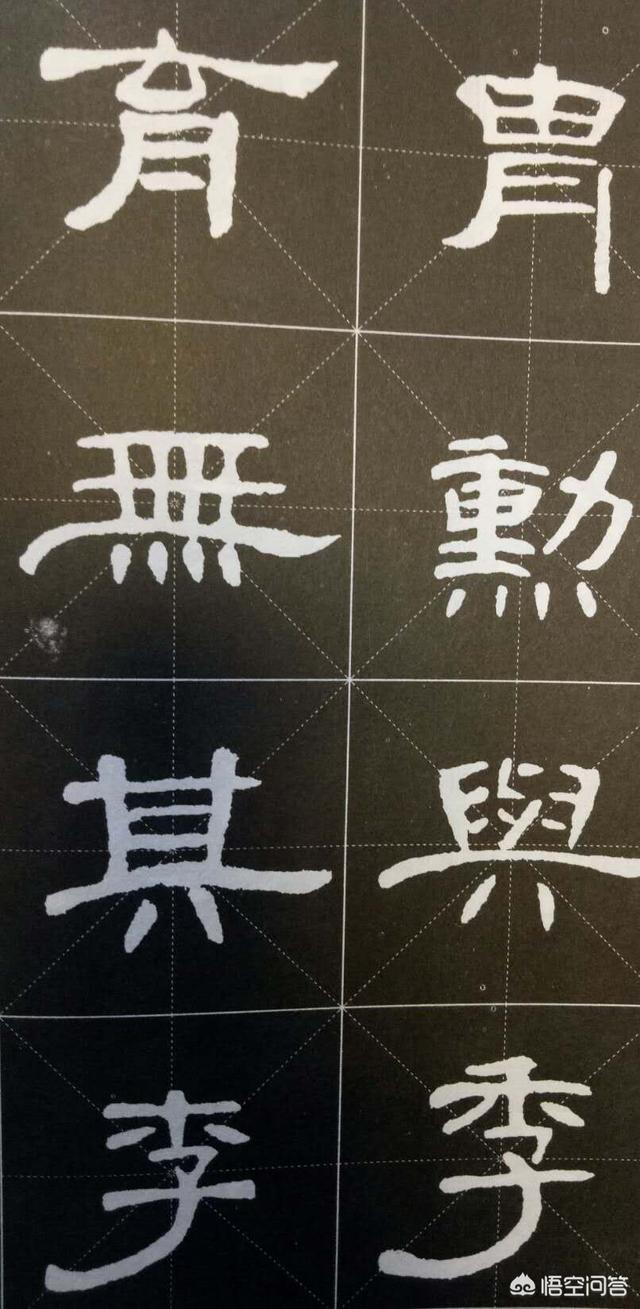 胄勳與季
育無其李
悟空问答